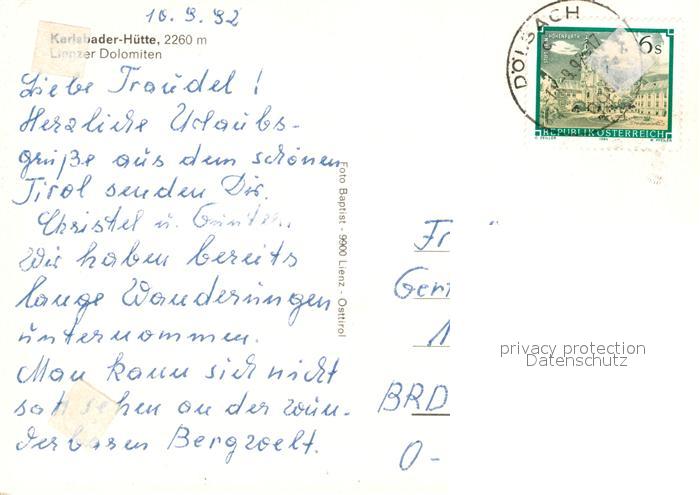 10.9.92
Karlsbader-Hütte, 2260 m
Lienzer Dolomiten
Liebe Traudel!
Herzliche Urlaubs-
grüße aus dem schönen
Tirol senden Dir.
Christel u. Günter.
Wir haben bereits
lange Wanderungen
unternommen.
Man kann sich nicht
satt sehen an der wun-
derbaren Bergwelt.
Foto Baptist - 9900 Lienz - Osttirol
DÖLSACH
6s
REPUBLIK ÖSTERREICH
Fr
Ger
BRD
O-
privacy protection
Datenschutz